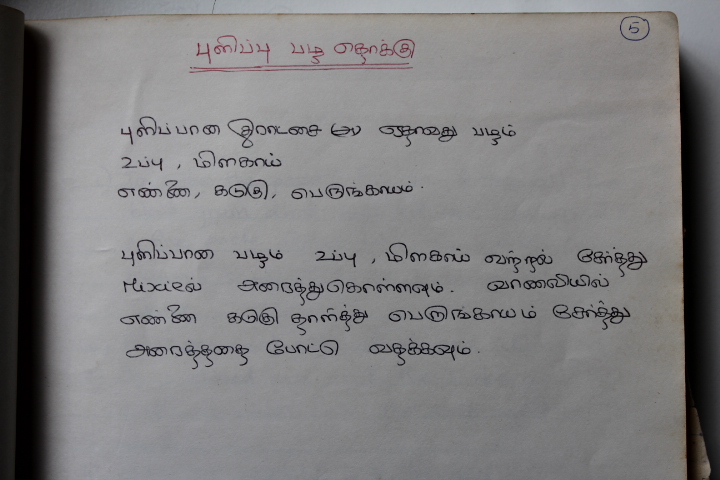 5
புளிப்பு பழ தொக்கு
புளிப்பான திராட்சை ஏதாவது பழம்
உப்பு, மிளகாய்
எண்ணை, கடுகு, பெருங்காயம்.
புளிப்பான பழம் உப்பு, மிளகாய் வற்றல் சேர்த்து
Mixieல் அரைத்துகொள்ளவும். வாணலியில்
எண்ணை கடுகு தாளித்து பெருங்காயம் சேர்த்து
அரைத்ததை போட்டு வதக்கவும்.